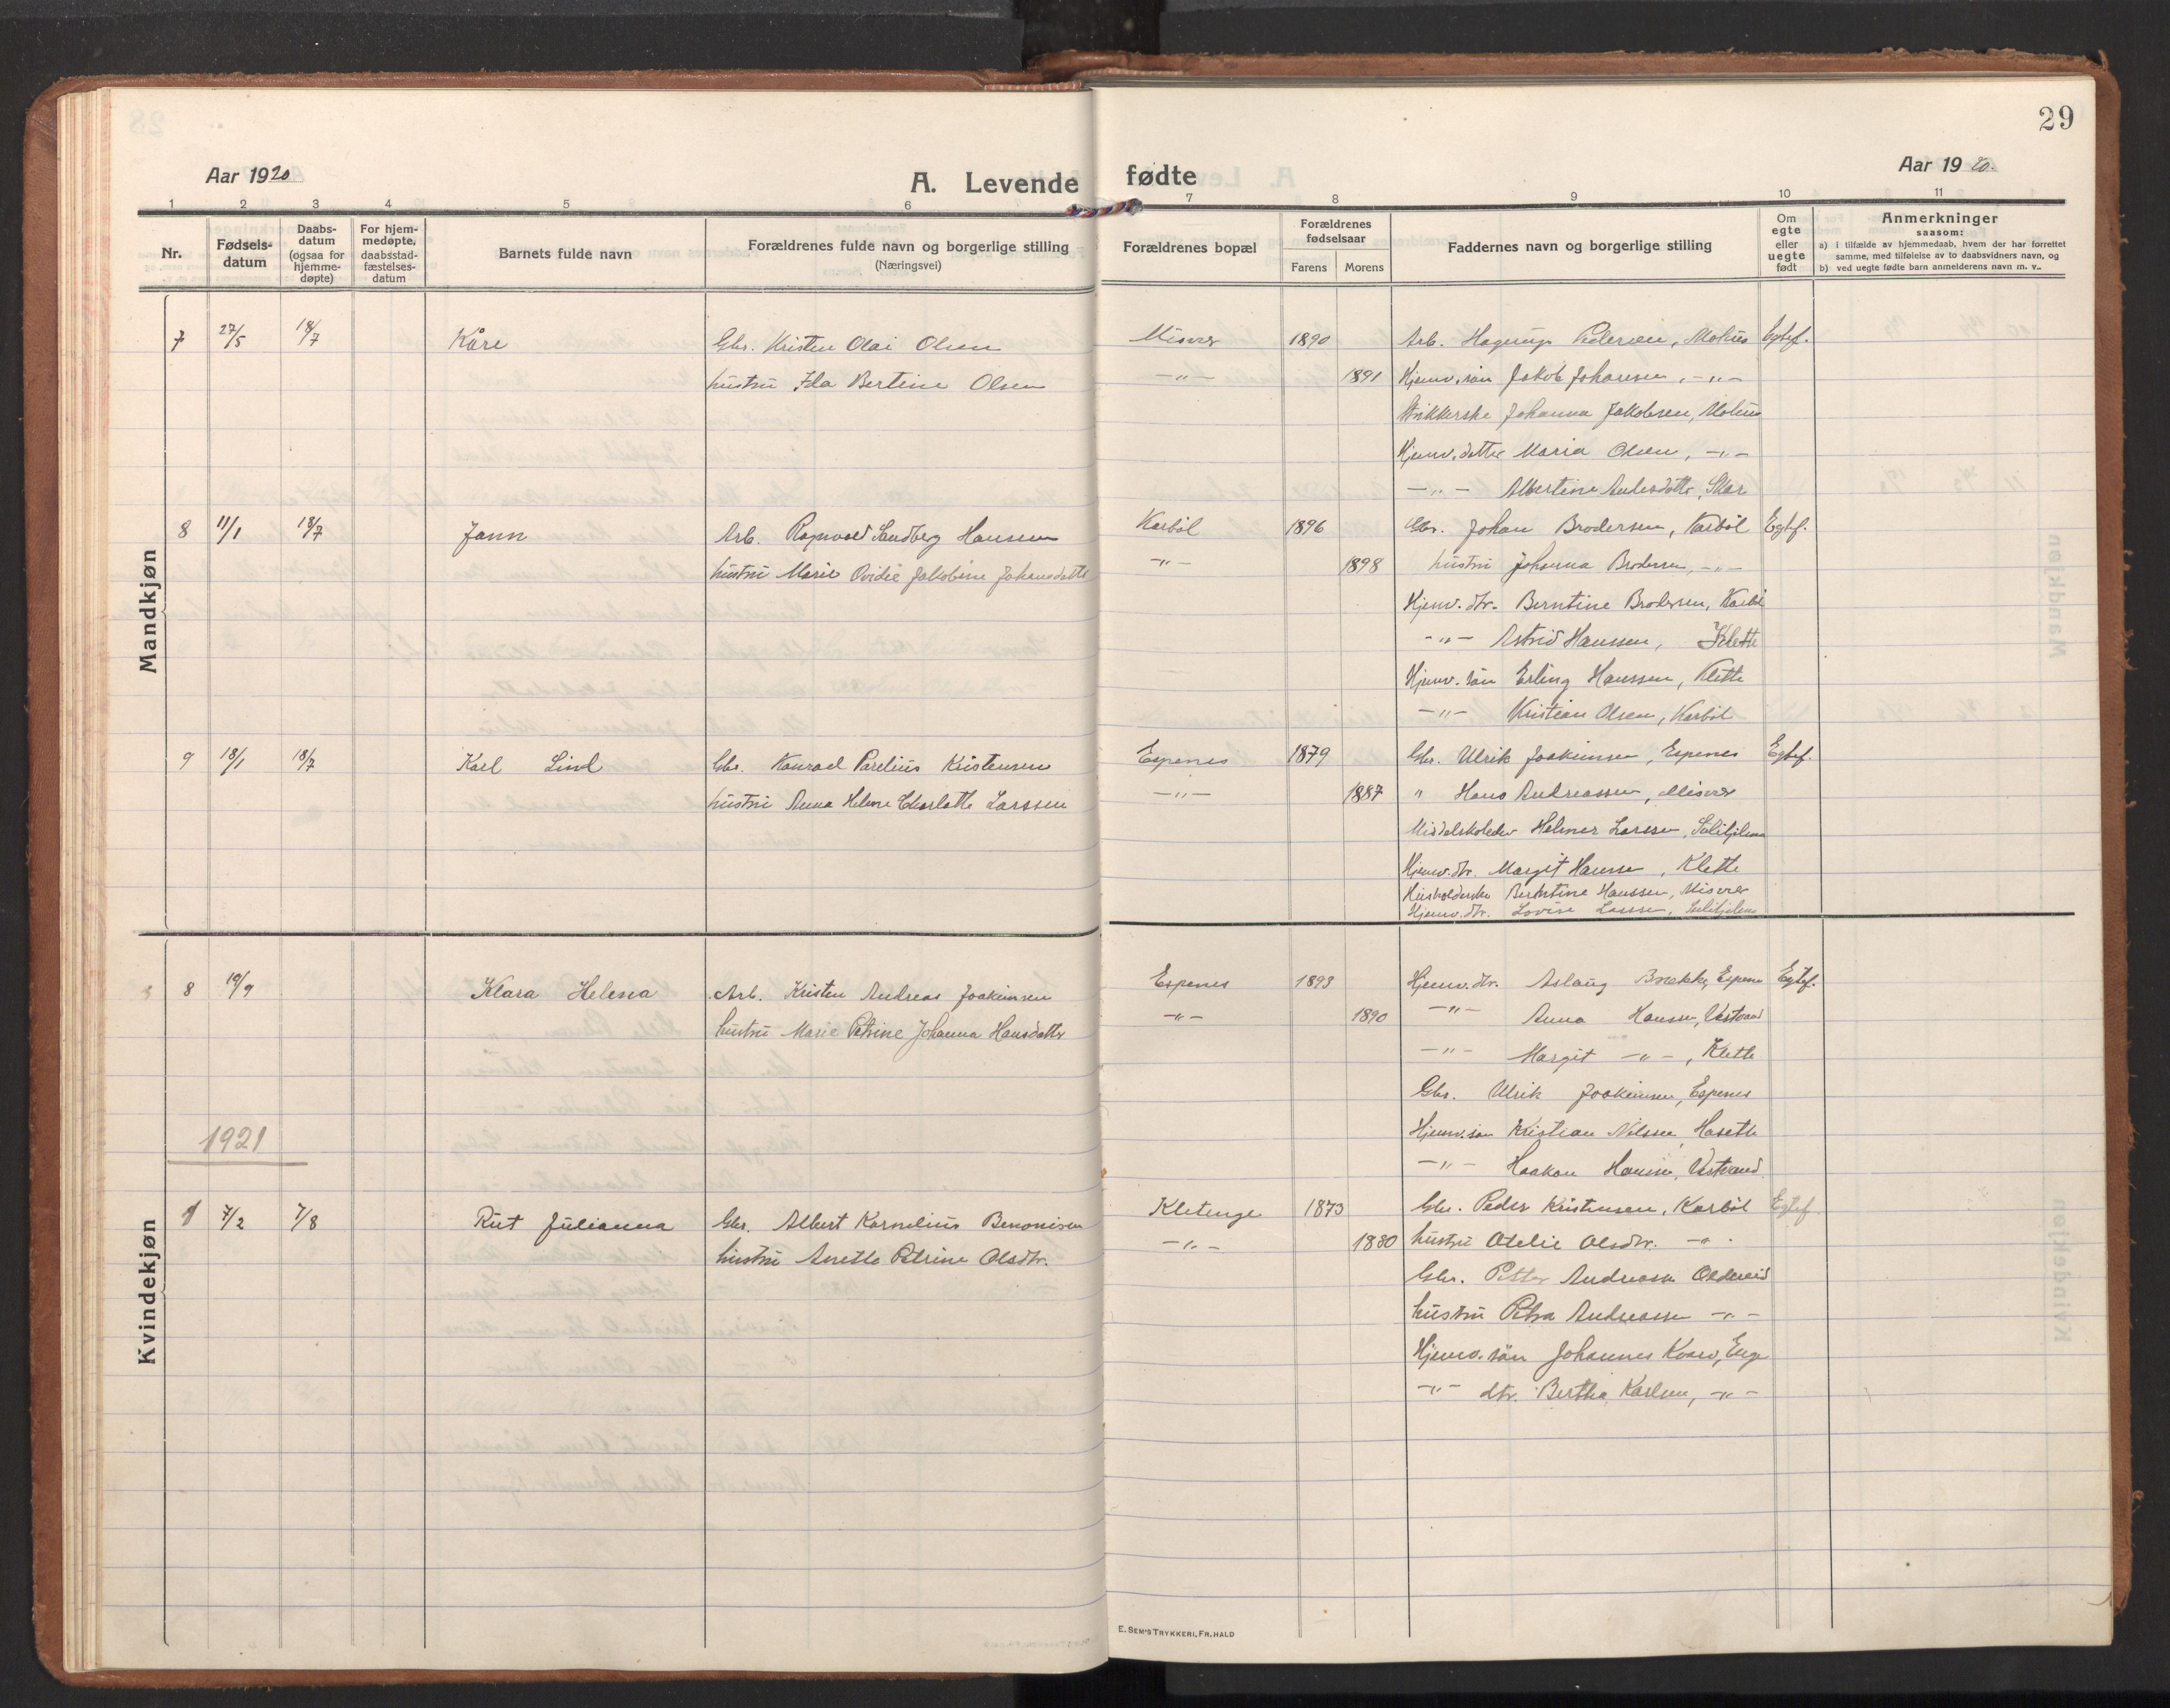 29
Aar 1920
A. Levende fødte
Aar 1920.
1 2 3 4 5 6 7 8 9 10 11
Nr.
Fødsels-
datum
Daabs-
datum
(ogsaa for
hjemme-
døpte)
For hjem-
medøpte,
daabsstad-
fæstelses-
datum
Barnets fulde navn
Forældrenes fulde navn og borgerlige stilling
(Næringsvei)
Forældrenes bopæl
Forældrenes
fødselsaar
Farens Morens
Faddernes navn og borgerlige stilling
Om
egte
eller
uegte
født
Anmerkninger
saasom:
a) i tilfælde av hjemmedaab, hvem der har forrettet
samme, med tilføielse av to daabsvidners navn, og
b) ved uegte fødte barn anmelderens navn m. v..
Mandkjøn
7 27/5 18/7 Kåre Gbr. Kristen Olai Olsen Misvær 1890 Arb. Hagerup Pedersen, Egtef.
hustru Ida Bertine Olsen -"- 1891 Hjemv. søn Jakob Johansen, -"-
Strikkerske Johanna Jakobsen,
Hjemv. datter Maria Olsen, -"-
-"- Albertine Andersdatter, Skar
8 11/1 18/7 Jann Arb. Ragnvald Sandberg Hanssen Karbøl 1896 Gbr. Johan Brodersen, Karbøl Egtef.
hustru Marie Ovidie Jakobine Johansdatter -"- 1898 hustru Johanna Brodersen, -"-
Hjemv. dtr. Berntine Brodersen, Karbøl
-"- Astrid Hanssen, Klette
Hjemv. søn Erling Hanssen, Klette
-"- Kristian Olsen, Karbøl
9 18/1 18/7 Karl Lind Gbr. Konrad Parelius Kristensen Espenes 1879 Gbr. Ulrik Joakimsen, Espenes Egtef.
hustru Anna Helene Charlotte Larssen -"- 1887 " Hans Andreassen, Misvær
Middelskoleelev Helmer Larssen, Sulitjelma
Hjemv. dtr. Margit Hanssen, Klette
Husholderske Berntine Hanssen, Misvær
Hjemv. dtr. Lovise Larssen, Sulitjelma
Kvindekjøn
8 19/9 Klara Helena Arb. Kristen Andreas Joakimsen Espenes 1893 Hjemv. dtr. Aslaug Brække, Espenes Egtef.
hustru Marie Petrine Johanna Hansdatter -"- 1890 -"- Anna Hanssen, Vestvand
-"- Margit -"-, Klette
Gbr. Ulrik Joakimsen, Espenes
1921 Hjemv. søn Kristian Nilssen,
-"- Haakon Hanssen, Vestvand
1 7/2 7/8 Rut Julianna Gbr. Albert Kornelius Benonisen Kletenge 1873 Gbr. Peder Kristensen, Karbøl Egtef.
hustru Anette Petrine Olsdtr. -"- 1880 hustru Otelie Olsdtr. -"-
Gbr. Petter Andreassen Oldereid
hustru Petra Andreassen -"-
Hjemv. søn Johannes Kvæv, Enge
-"- dtr. Bertha Karlsen, -"-
E. SEM'S TRYKKERI, FR.HALD